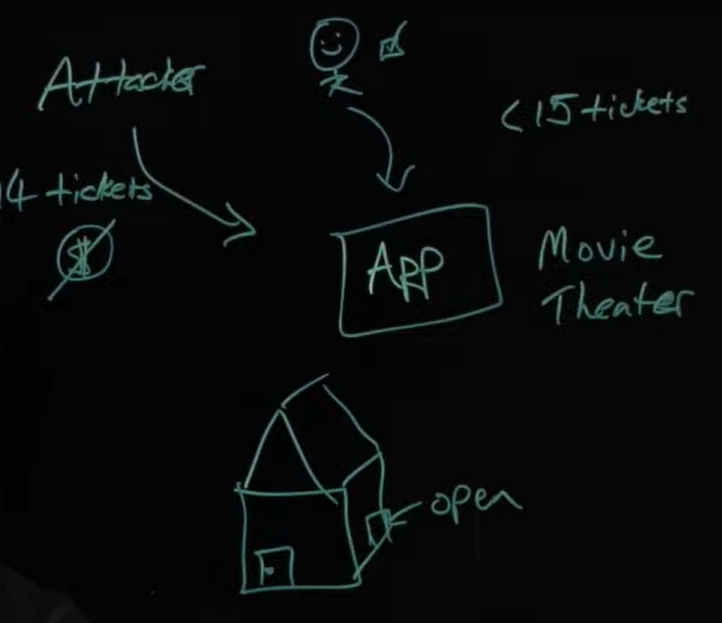 Attacker
<15 tickets
14 tickets
$
App
Movie
Theater
open